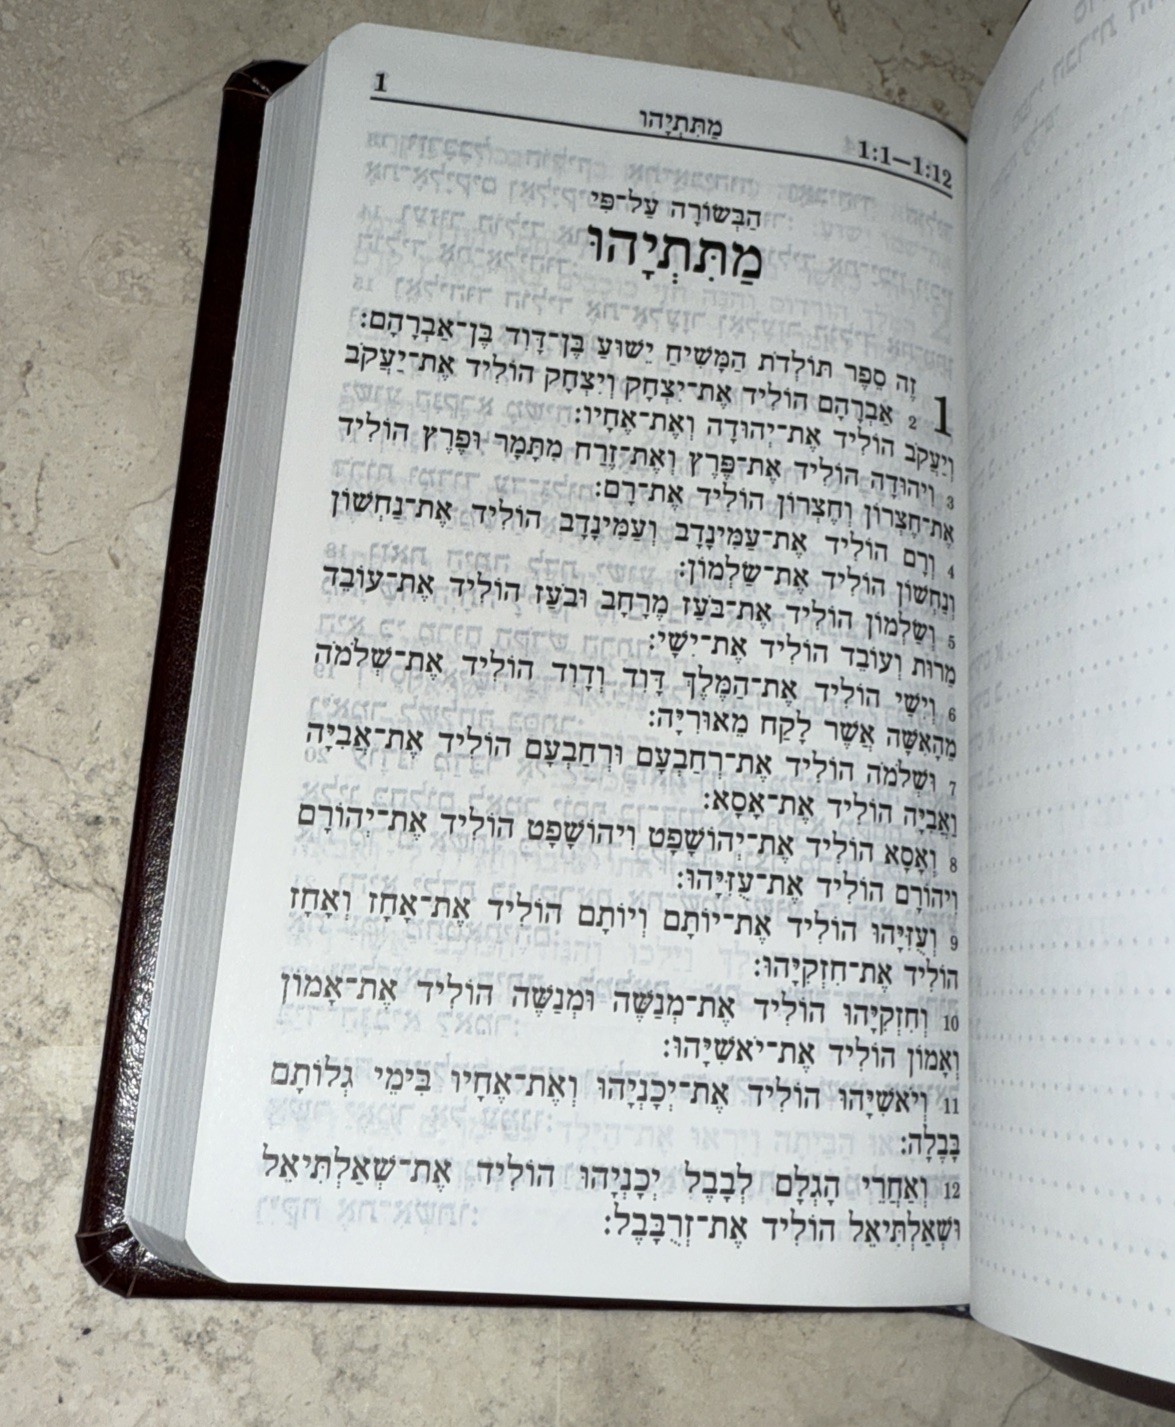 1
מַתִּתְיָהוּ
1:1–1:12
הַבְּשׂוֹרָה עַל־פִּי
מַתִּתְיָהוּ
1 זֶה סֵפֶר תּוֹלְדֹת הַמָּשִׁיחַ יֵשׁוּעַ בֶּן־דָּוִד בֶּן־אַבְרָהָם׃
2 אַבְרָהָם הוֹלִיד אֶת־יִצְחָק וְיִצְחָק הוֹלִיד אֶת־יַעֲקֹב
וְיַעֲקֹב הוֹלִיד אֶת־יְהוּדָה וְאֶת־אֶחָיו׃
3 וִיהוּדָה הוֹלִיד אֶת־פֶּרֶץ וְאֶת־זֶרַח מִתָּמָר וּפֶרֶץ הוֹלִיד
אֶת־חֶצְרוֹן וְחֶצְרוֹן הוֹלִיד אֶת־רָם׃
4 וְרָם הוֹלִיד אֶת־עַמִּינָדָב וְעַמִּינָדָב הוֹלִיד אֶת־נַחְשׁוֹן
וְנַחְשׁוֹן הוֹלִיד אֶת־שַׂלְמוֹן׃
5 וְשַׂלְמוֹן הוֹלִיד אֶת־בֹּעַז מֵרָחָב וּבֹעַז הוֹלִיד אֶת־עוֹבֵד
מֵרוּת וְעוֹבֵד הוֹלִיד אֶת־יִשָׁי׃
6 וְיִשַׁי הוֹלִיד אֶת־הַמֶּלֶךְ דָּוִד וְדָוִד הוֹלִיד אֶת־שְׁלֹמֹה
מֵהָאִשָּׁה אֲשֶׁר לָקַח מֵאוּרִיָּה׃
7 וּשְׁלֹמֹה הוֹלִיד אֶת־רְחַבְעָם וּרְחַבְעָם הוֹלִיד אֶת־אֲבִיָּה
וַאֲבִיָּה הוֹלִיד אֶת־אָסָא׃
8 וְאָסָא הוֹלִיד אֶת־יְהוֹשָׁפָט וִיהוֹשָׁפָט הוֹלִיד אֶת־יְהוֹרָם
וִיהוֹרָם הוֹלִיד אֶת־עֻזִּיָּהוּ׃
9 וְעֻזִּיָּהוּ הוֹלִיד אֶת־יוֹתָם וְיוֹתָם הוֹלִיד אֶת־אָחָז וְאָחָז
הוֹלִיד אֶת־חִזְקִיָּהוּ׃
10 וְחִזְקִיָּהוּ הוֹלִיד אֶת־מְנַשֶּׁה וּמְנַשֶּׁה הוֹלִיד אֶת־אָמוֹן
וְאָמוֹן הוֹלִיד אֶת־יֹאשִׁיָּהוּ׃
11 וְיֹאשִׁיָּהוּ הוֹלִיד אֶת־יְכָנְיָהוּ וְאֶת־אֶחָיו בִּימֵי גְלוֹתָם
בָּבֶלָה׃
12 וְאַחֲרֵי הָגְלָם לְבָבֶל יְכָנְיָהוּ הוֹלִיד אֶת־שְׁאַלְתִּיאֵל
וּשְׁאַלְתִּיאֵל הוֹלִיד אֶת־זְרֻבָּבֶל׃